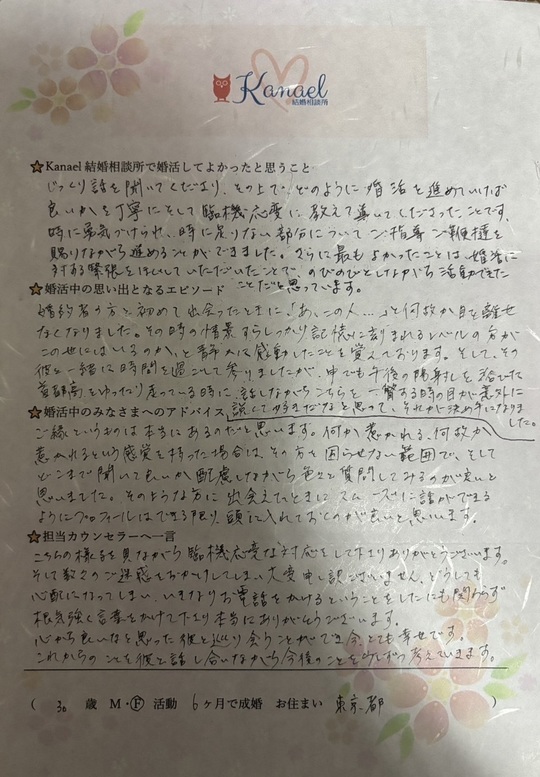 Kanael
結婚相談所
Kanael 結婚相談所で婚活してよかったと思うこと
じっくり話を聞いてくださり、その上で、どのように婚活を進めていけば
良いかを丁寧にそして臨機応変に教えて導いてくださったことです。
時に勇気づけられ、時に足りない部分についてご指導ご鞭撻を
賜りながら進めることができました。さらに最もよかったことは、婚活に
対する緊張をほぐしていただいたことで、のびのびとしながら活動できた
ことだと思っています。
婚活中の思い出となるエピソード
婚約者の方と初めて出会ったときに「あ、この人…」と何故か目を離せ
なくなりました。その時の情景すらしっかり記憶に刻まれるレベルの方が
この世にはいるのか、と静かに感動したことを覚えております。そして、その
彼と一緒に時間を過ごして参りましたが、中でも午後の陽射しを浴びて
首都高をゆったり走っている時に、話しながらこちらを一瞥する時の目が意外に
鋭くて好きだなと思って、それが決め手になりました。
婚活中のみなさまへのアドバイス
ご縁というものは本当にあるのだと思います。何か惹かれる、何故か
惹かれるという感覚を持った場合は、その方を困らせない範囲で、そして
どこまで聞いて良いか配慮しながら色々と質問してみるのが良いと
思いました。そのような方に出会えたときにスムーズに話ができる
ようにプロフィールはできる限り頭に入れておくのが良いと思います。
担当カウンセラーへ一言
こちらの様子を見ながら臨機応変な対応をして下さりありがとうございます。
そして数々のご迷惑をおかけしてしまい大変申し訳ございません。どうしても
心配になってしまい、いきなりお電話をかけるということをしたにも関わらず
根気強く言葉をかけて下さり本当にありがとうございます。
心から良いなと思った彼と巡り会うことができ今、とても幸せです。
これからのことを彼と話し合いながら今後のことを少しずつ考えていきます。
( 30 歳 M・F 活動 6ヶ月で成婚 お住まい 東京都 )